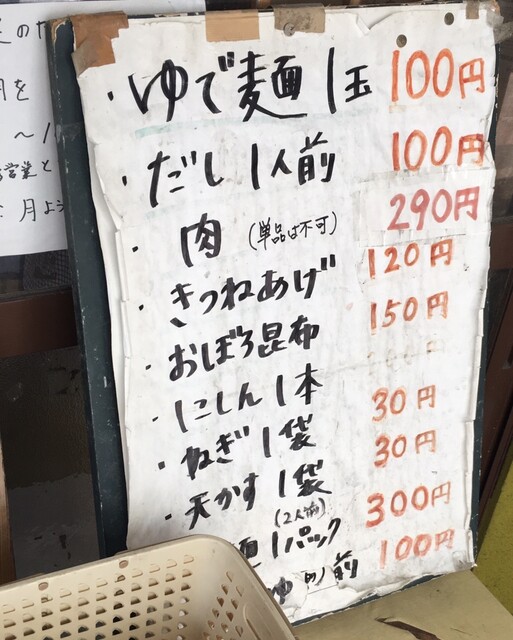 ・ゆで麺 1玉 100円
・だし 1人前 100円
・肉 (単品は不可) 290円
・きつねあげ 120円
・おぼろ昆布 150円
・にしん 1本
・ねぎ 1袋 30円
・天かす 1袋 30円
(2人前)
1パック 300円
前 100円
営業と
月よう